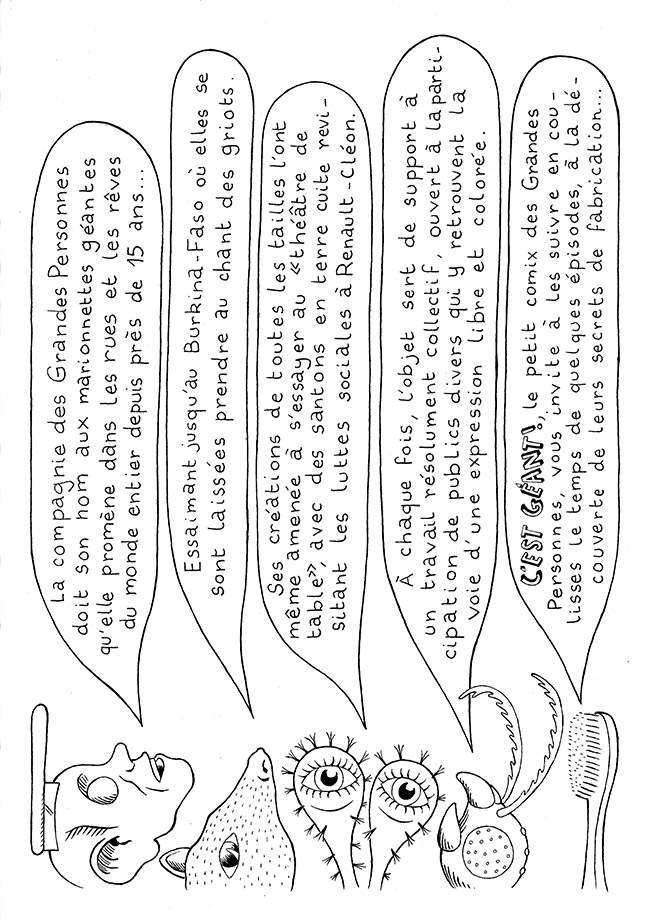 La compagnie des Grandes Personnes
doit son nom aux marionnettes géantes
qu'elle promène dans les rues et les rêves
du monde entier depuis près de 15 ans...
Essaimant jusqu'au Burkina-Faso où elles se
sont laissées prendre au chant des griots.
Ses créations de toutes les tailles l'ont
même amenée à s'essayer au «théâtre de
table», avec des santons en terre cuite revi-
sitant les luttes sociales à Renault-Cléon.
À chaque fois, l'objet sert de support à
un travail résolument collectif, ouvert à la parti-
cipation de publics divers qui y retrouvent la
voie d'une expression libre et colorée.
C'EST GÉANT!, le petit comix des Grandes
Personnes, vous invite à les suivre en cou-
lisses le temps de quelques épisodes, à la dé-
couverte de leurs secrets de fabrication...